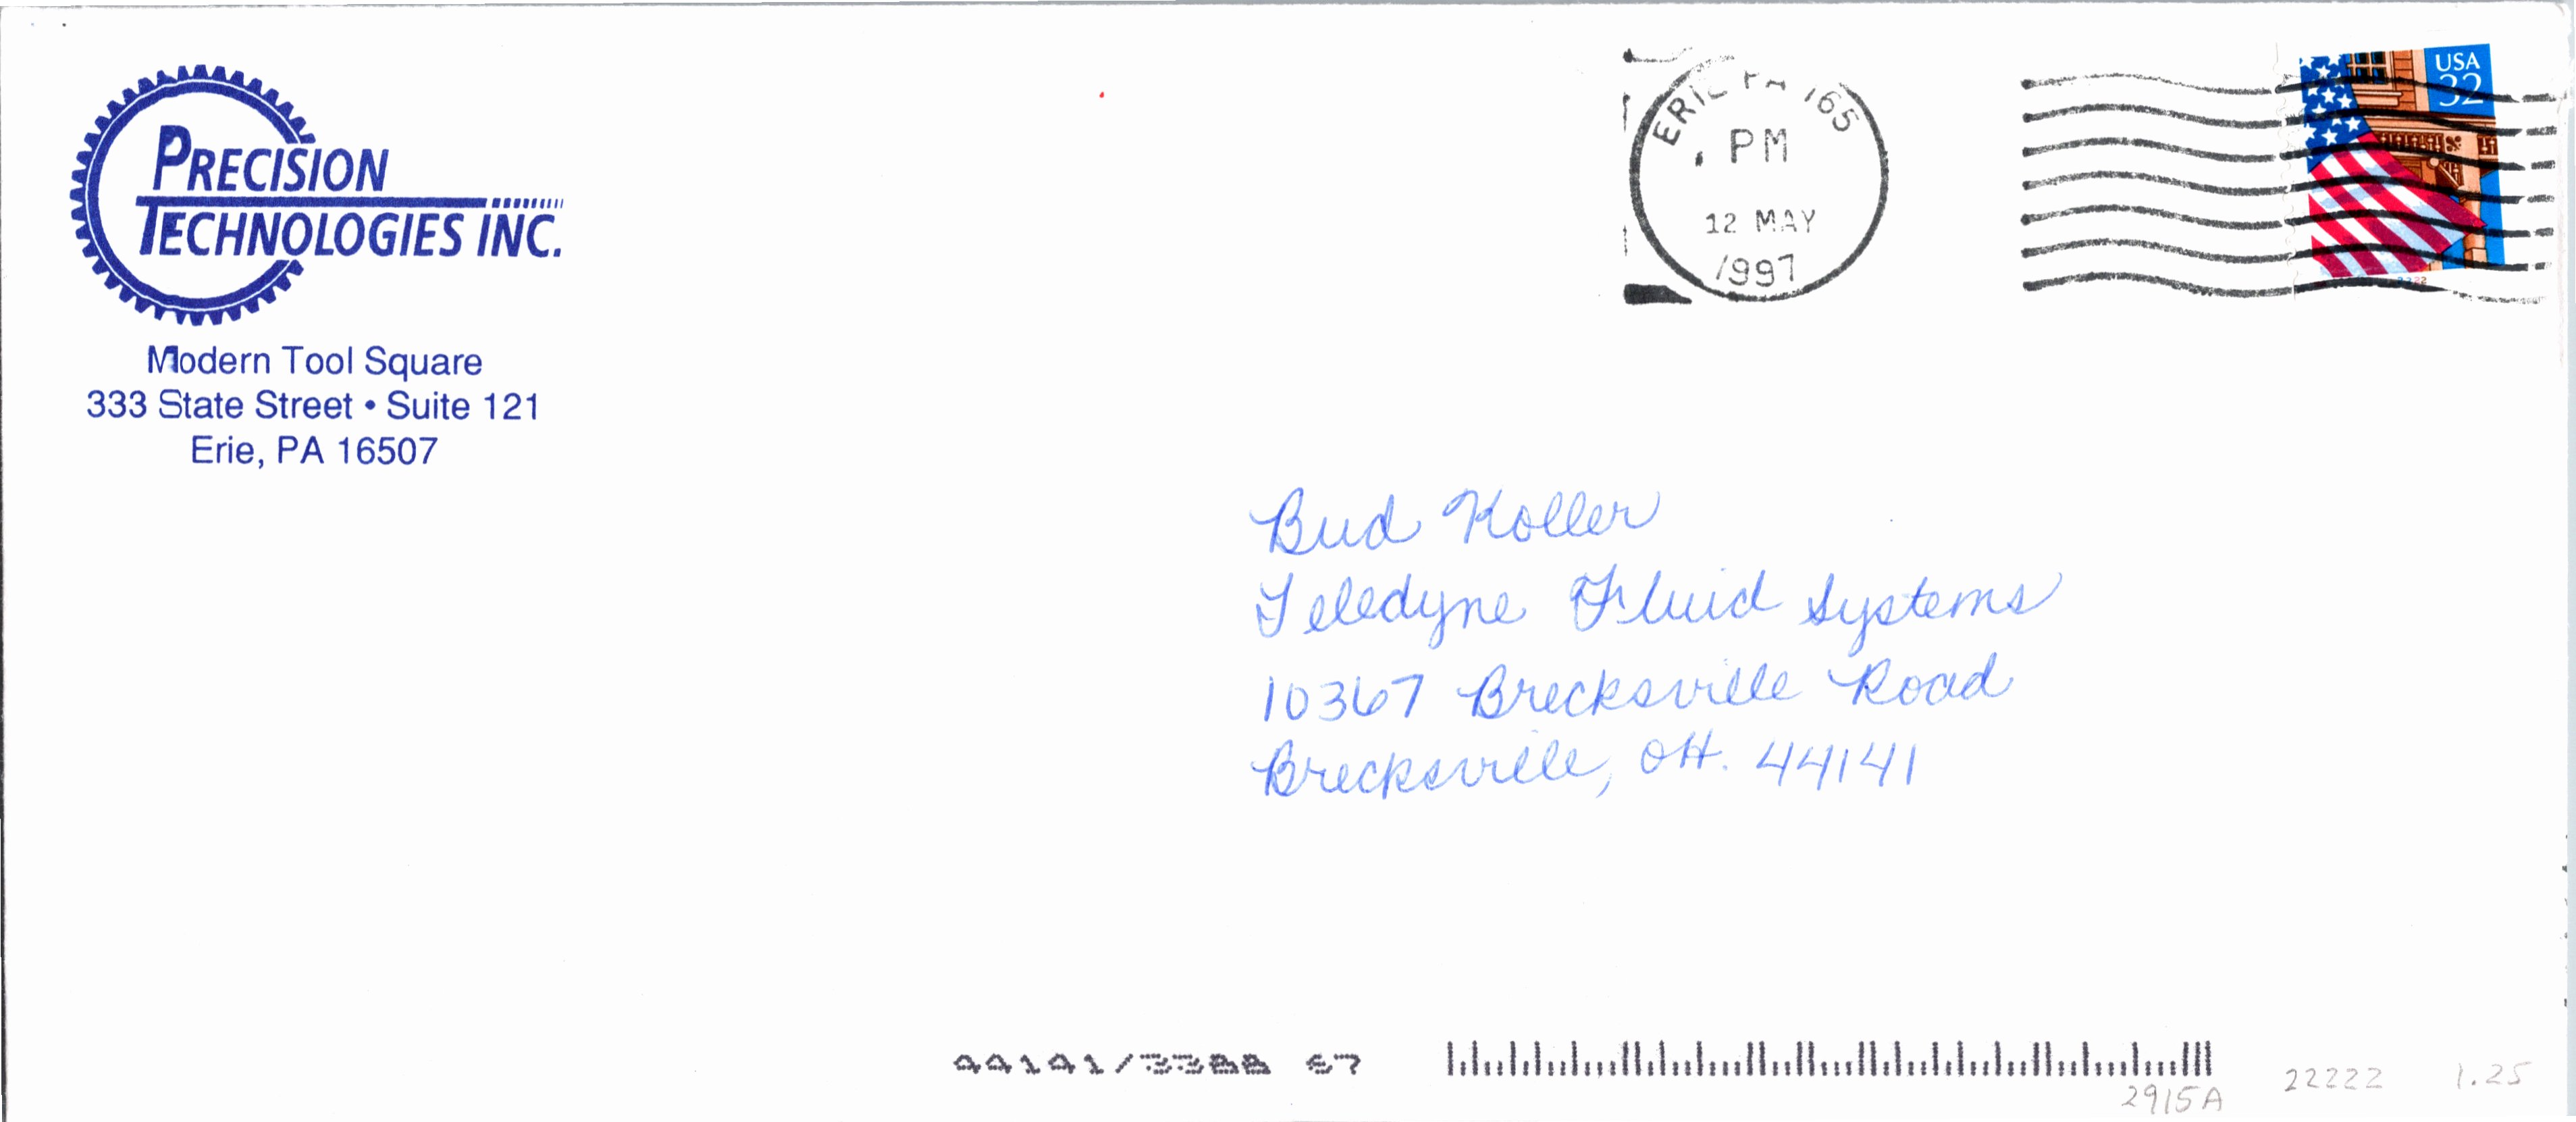 PRECISION
TECHNOLOGIES INC.
Modern Tool Square
333 State Street • Suite 121
Erie, PA 16507
ERIE PA 165
PM
12 MAY
1997
USA
32
Bud Koller
Teledyne Fluid Systems
10367 Brecksville Road
Brecksville, OH. 44141
44141/3388 67
2915A
22222
1.25